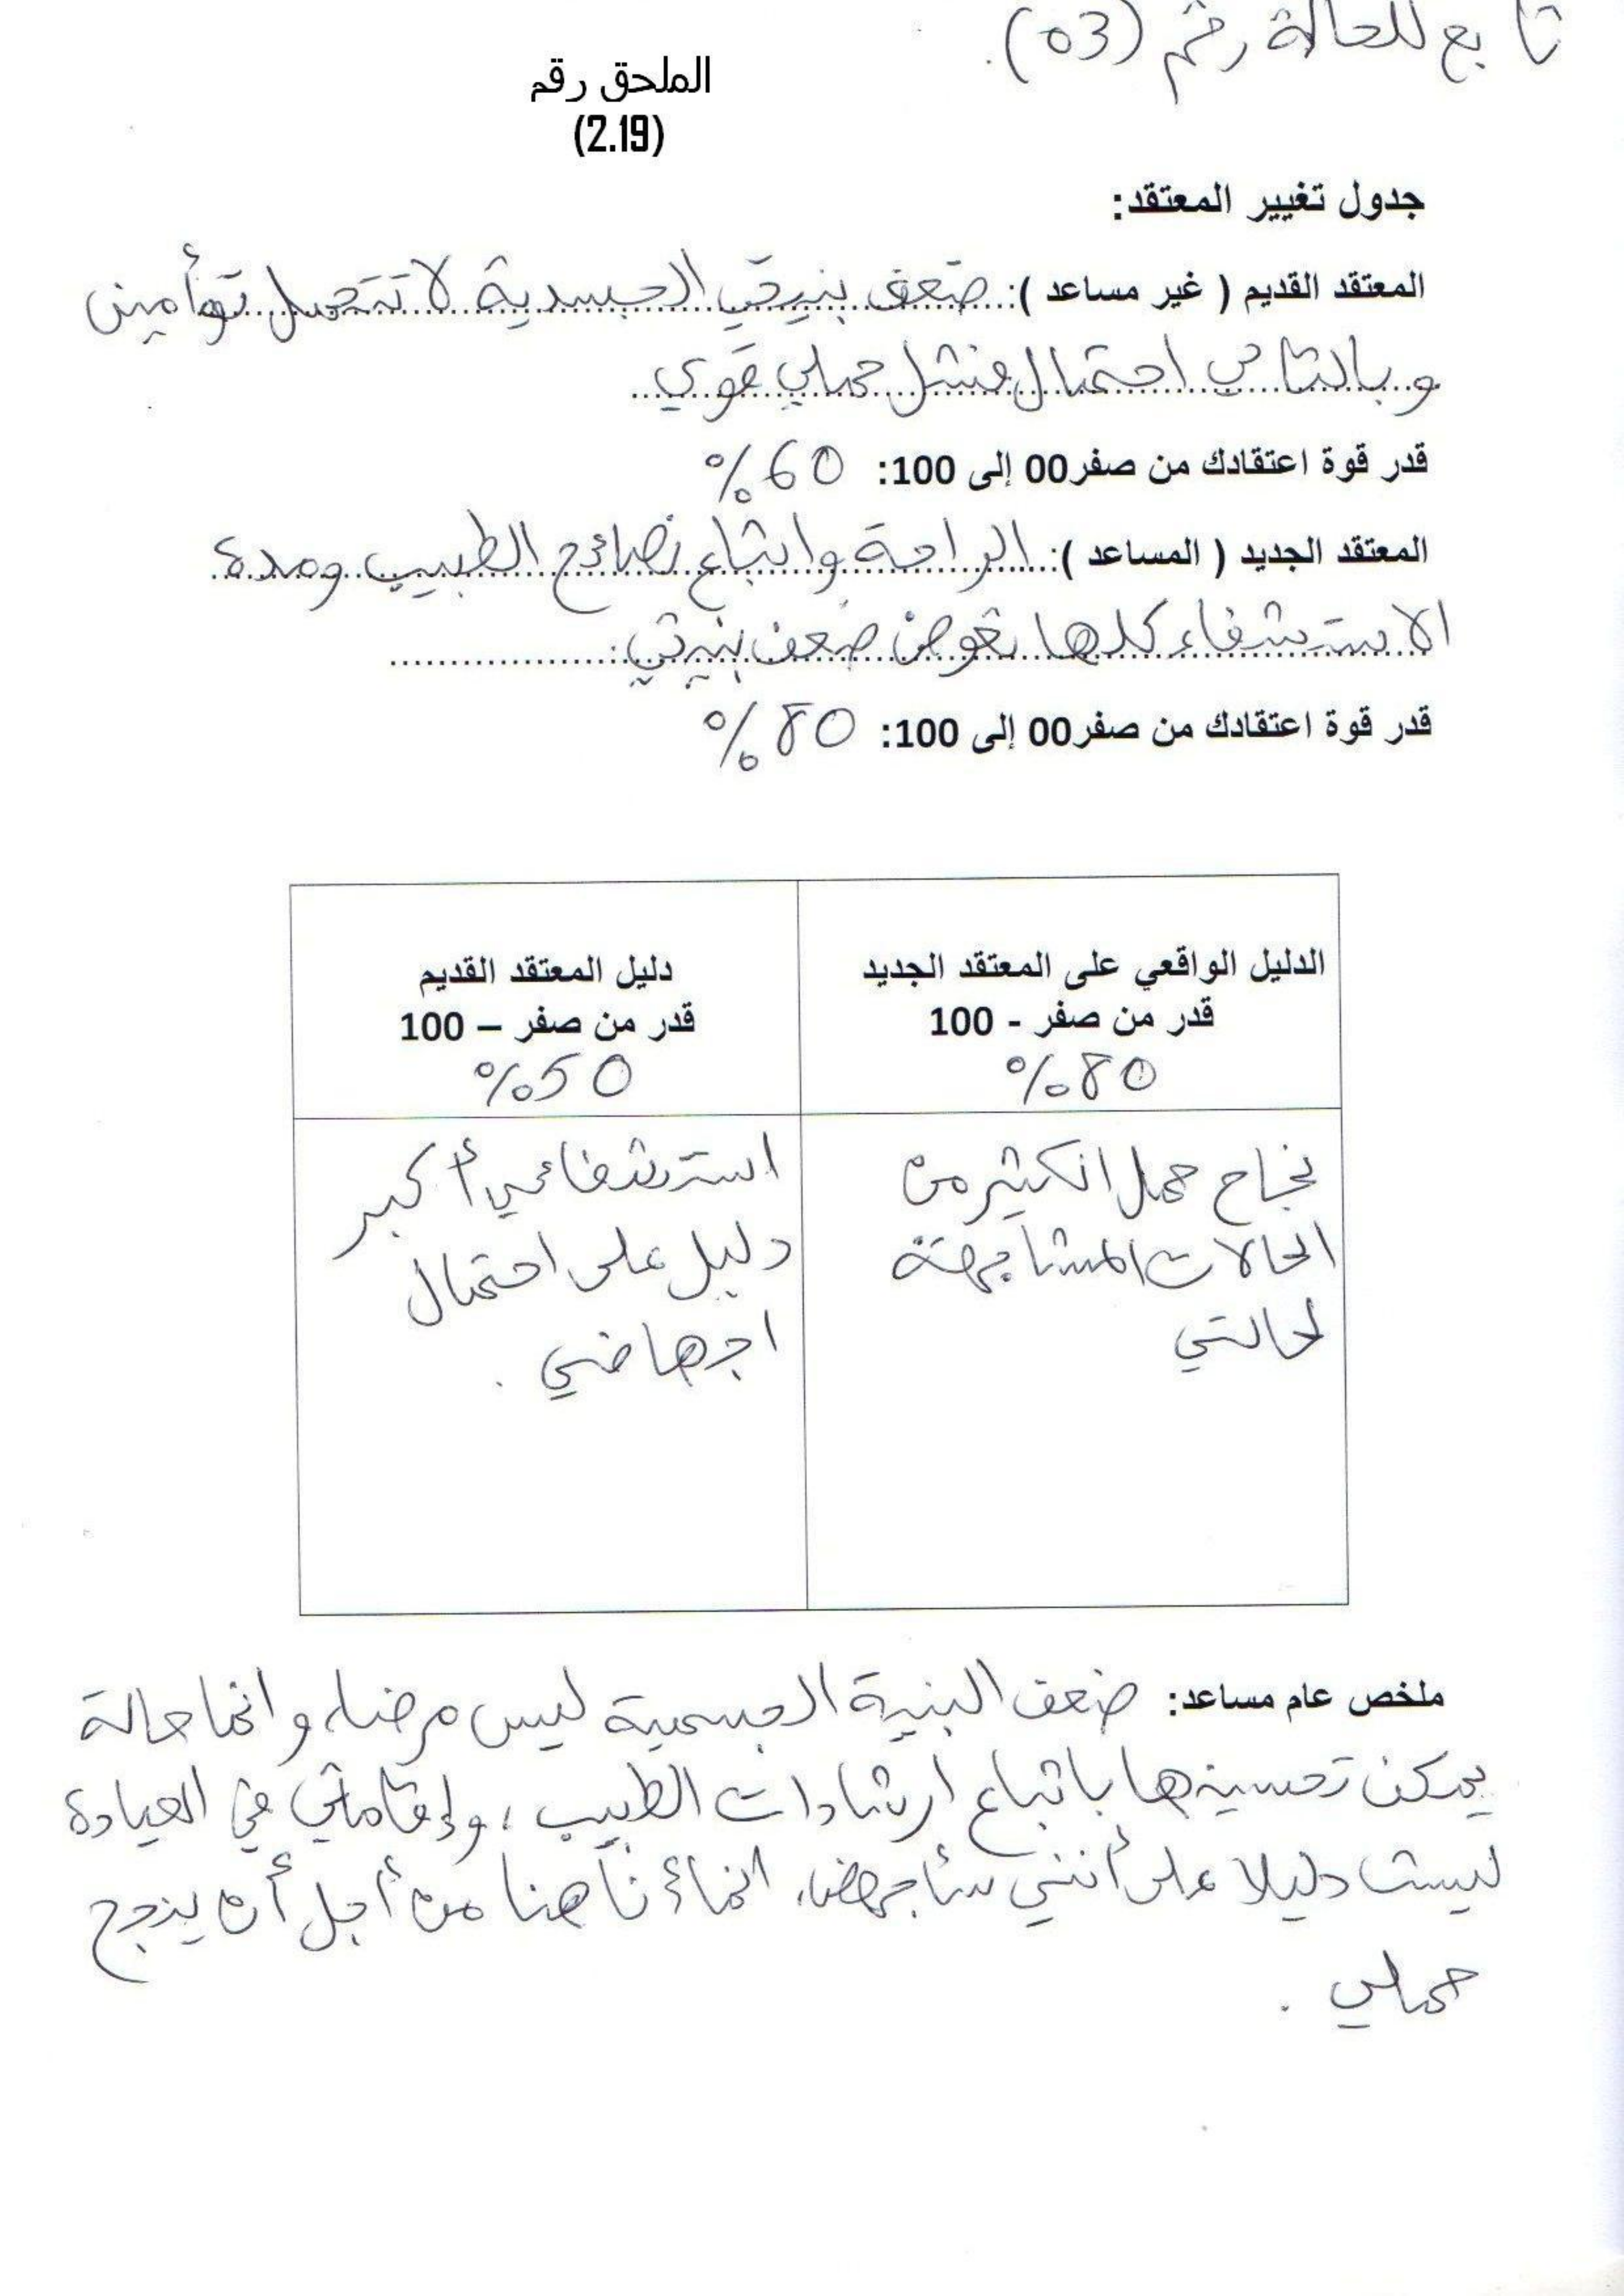 تابع للحالة رقم (03).
الملحق رقم
(2.19)
جدول تغيير المعتقد:
المعتقد القديم ( غير مساعد ): ضعف بنيتي الجسدية لا تتحمل توأمين
وبالتالي احتمال فشل حملي قوي
قدر قوة اعتقادك من صفر00 إلى 100: 60%
المعتقد الجديد ( المساعد ): الراحة واتباع نصائح الطبيب ومدة
الاستشفاء كلها تعوض ضعف بنيتي.
قدر قوة اعتقادك من صفر00 إلى 100: 80%
الدليل الواقعي على المعتقد الجديد
قدر من صفر - 100
80%
نجاح حمل الكثير من
الحالات المشابهة
لحالتي
دليل المعتقد القديم
قدر من صفر – 100
50%
استشفائي أكبر
دليل على احتمال
اجهاضي .
ملخص عام مساعد: ضعف البنية الجسمية ليس مرضا، وانما حالة
يمكن تحسينها باتباع ارشادات الطبيب ، وإقامتي في العيادة
ليست دليلا على أنني سأجهض، انما أنا هنا من أجل أن ينجح
حملي .